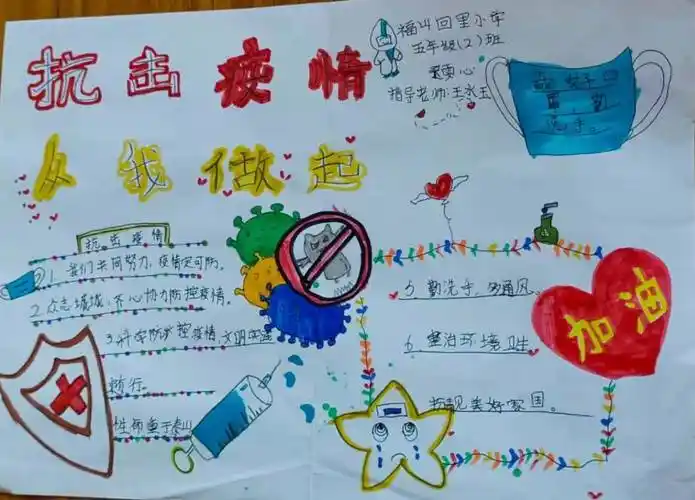 抗击疫情
从我做起
福山回里小学
五年级(2)班
指导老师:王水玉
戴好口
罩,勤
洗手。
抗击疫情
1.我们共同努力,疫情定可防。
2.众志成城,齐心协力防控疫情。
3.科学防控疫情,文明实
随行。
性命重于泰山
5.勤洗手,多通风。
6.整治环境卫生
靓美好家园。
加油